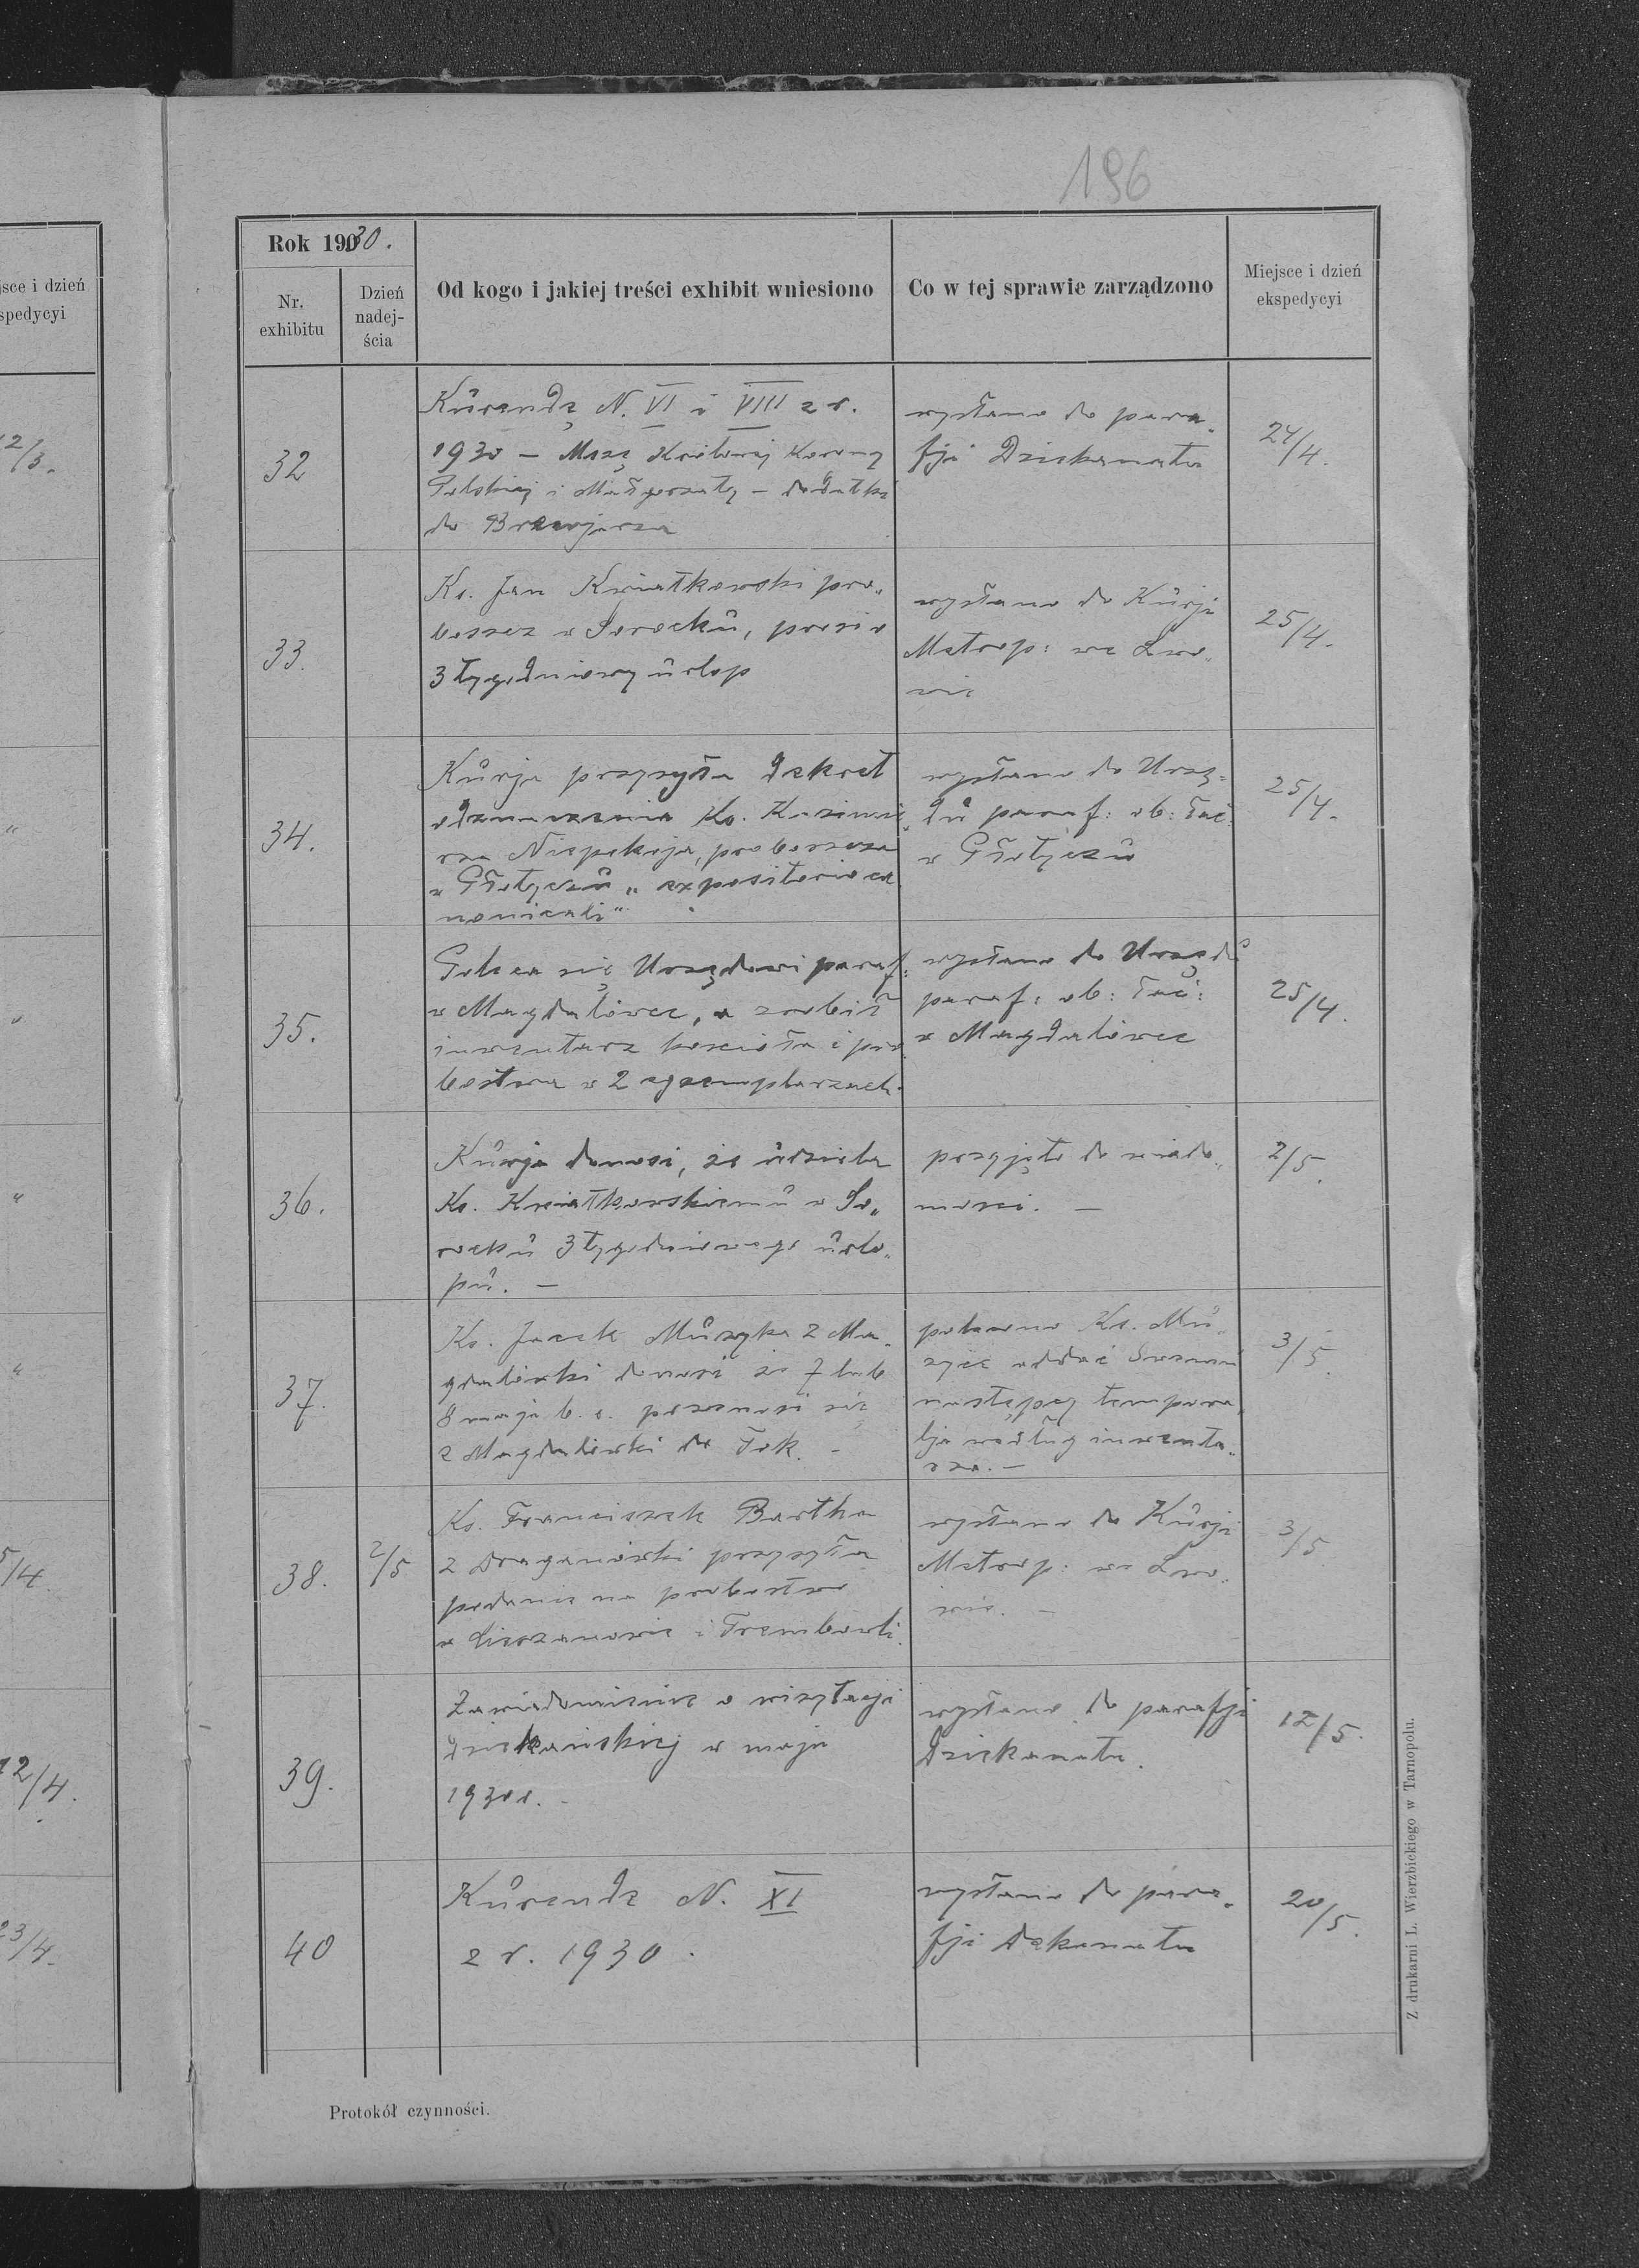 196
jsce i dzień
spedycyi
12/3.
"
"
"
"
5/4.
12/4.
23/4.
Rok 1930.
Nr. exhibitu
Dzień nadej-
ścia
Od kogo i jakiej treści exhibit wniesiono
Co w tej sprawie zarządzono
Miejsce i dzień
ekspedycyi
32
Kurendę N. VI i VIII z r.
1930 – Mszę Królowej Korony
Polskiej i Małgorzaty – dodatki
do Brewjarza
wysłano do para„
fji Dziekanatu
24/4.
33.
Ks. Jan Kwiatkowski pro„
boszcz w Sorocku, prosi o
3 tygodniowy urlop
wysłano do Kurji
Metrop: we Lwo„
wie
25/4.
34.
Kurja przysyła dekret
odznaczenia Ks. Kazimie„
rza Niepokoja, proboszcza
w Płotyczu „expositorio ca
nonicali"
wysłano do Urzę=
du paraf: ob: łać:
w Płotyczu
25/4.
35.
Poleca się Urzędowi paraf:
w Magdalówce, a zrobić
inwentarz kościoła i pro
bostwa w 2 egzemplarzach.
wysłano do Urzędu
paraf: ob: łać:
w Magdalówce
25/4.
36.
Kurja donosi, że udziela
Ks. Kwiatkowskiemu w So„
rocku 3 tygodniowego urlo„
pu. –
przyjęto do wiado„
mości. –
2/5.
37.
Ks. Jacek Muzyka z Ma„
gdalówki donosi że 7 lub
8 maja b. r. przenosi się
z Magdalówki do Tok. –
polecono Ks. Mu„
zyce oddać Swemu
następcy tempora„
lja według inwenta„
rza. –
3/5.
38.
2/5
Ks. Franciszek Bartka
z Draganówki przysyła
podanie na probostwo
w Cieszanowie i Trembowli.
wysłano do Kurji
Metrop: we Lwo„
wie. –
3/5
39.
Zawiadomienie o wizytacji
dziekańskiej w maju
1930 r. –
wysłano do parafji
Dziekanatu.
12/5.
40
Kurendę N. XI
z r. 1930.
wysłano do para„
fji Dekanatu
20/5.
Protokół czynności.
Z drukarni L. Wierzbickiego w Tarnopolu.